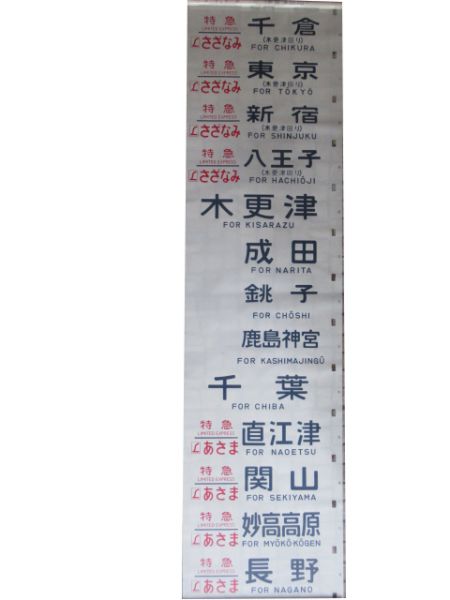 特急 千倉
LIMITED EXPRESS (木更津回り)
さざなみ FOR CHIKURA
特急 東京
LIMITED EXPRESS (木更津回り)
さざなみ FOR TŌKYŌ
特急 新宿
LIMITED EXPRESS (木更津回り)
さざなみ FOR SHINJUKU
特急 八王子
LIMITED EXPRESS (木更津回り)
さざなみ FOR HACHIŌJI
木更津
FOR KISARAZU
成田
FOR NARITA
銚子
FOR CHŌSHI
鹿島神宮
FOR KASHIMAJINGŪ
千葉
FOR CHIBA
特急 直江津
LIMITED EXPRESS
あさま FOR NAOETSU
特急 関山
LIMITED EXPRESS
あさま FOR SEKIYAMA
特急 妙高高原
LIMITED EXPRESS
あさま FOR MYŌKŌ-KŌGEN
特急 長野
LIMITED EXPRESS
あさま FOR NAGANO